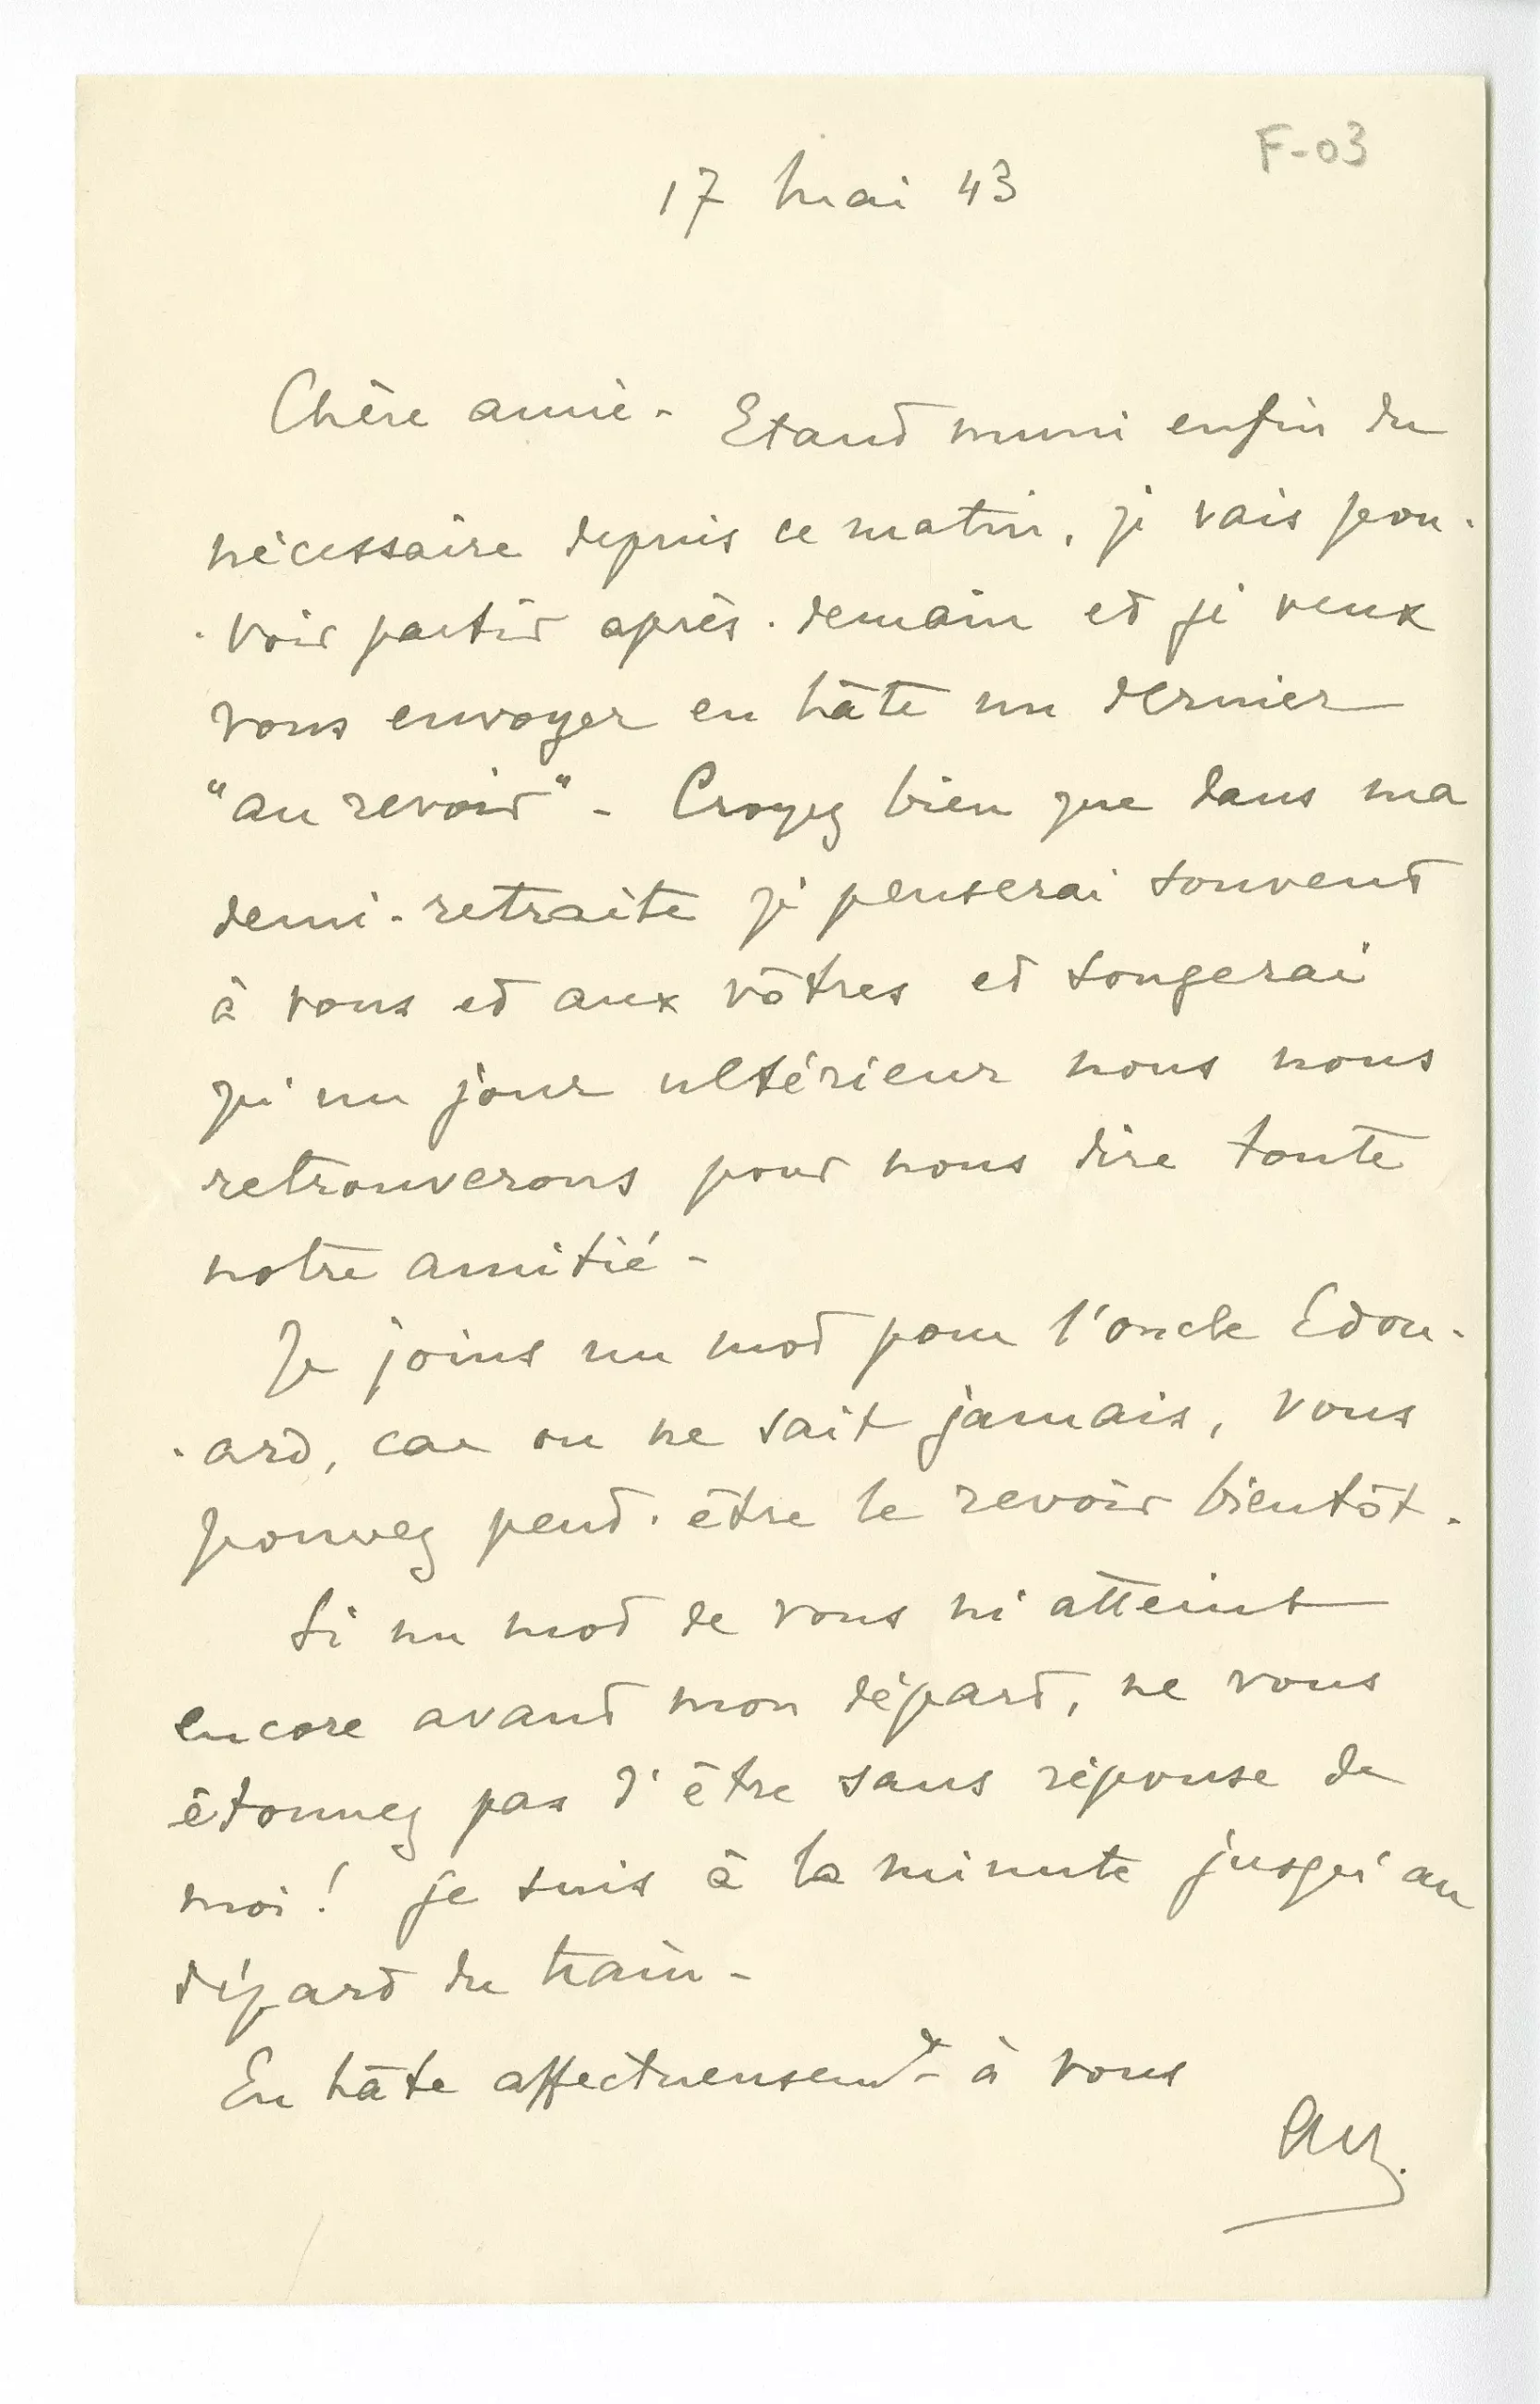 F-03
17 mai 43
Chère amie - Etant muni enfin du
nécessaire depuis ce matin, je vais pou-
-voir partir après-demain et je veux
vous envoyer en hâte un dernier
"au revoir" - Croyez bien que dans ma
demi-retraite je penserai souvent
à vous et aux vôtres et songerai
qu'un jour ultérieur nous nous
retrouverons pour nous dire toute
notre amitié -
Je joins un mot pour l'oncle Edou-
-ard, car on ne sait jamais, vous
pouvez peut-être le revoir bientôt.
Si un mot de vous m'atteint
encore avant mon départ, ne vous
étonnez pas d'être sans réponse de
moi! je suis à la minute jusqu'au
départ du train -
En hâte affectueusemt - à vous